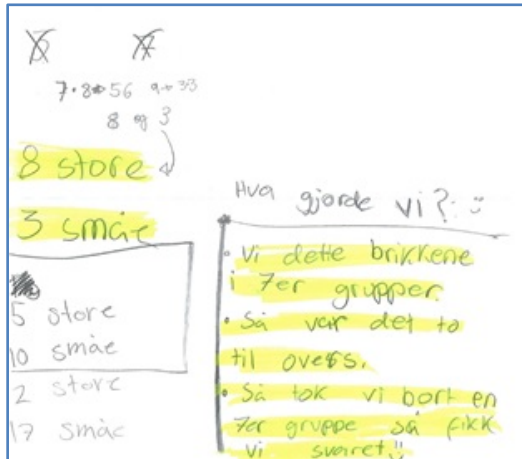 7·8=56
8 og 3
8 store
3 småe
5 store
10 småe
2 store
17 småe
Hva gjorde vi?
Vi dette brikkene
i 7er grupper.
Så var det to
til overs.
Så tok vi bort en
7er gruppe så fikk
vi svaret!!